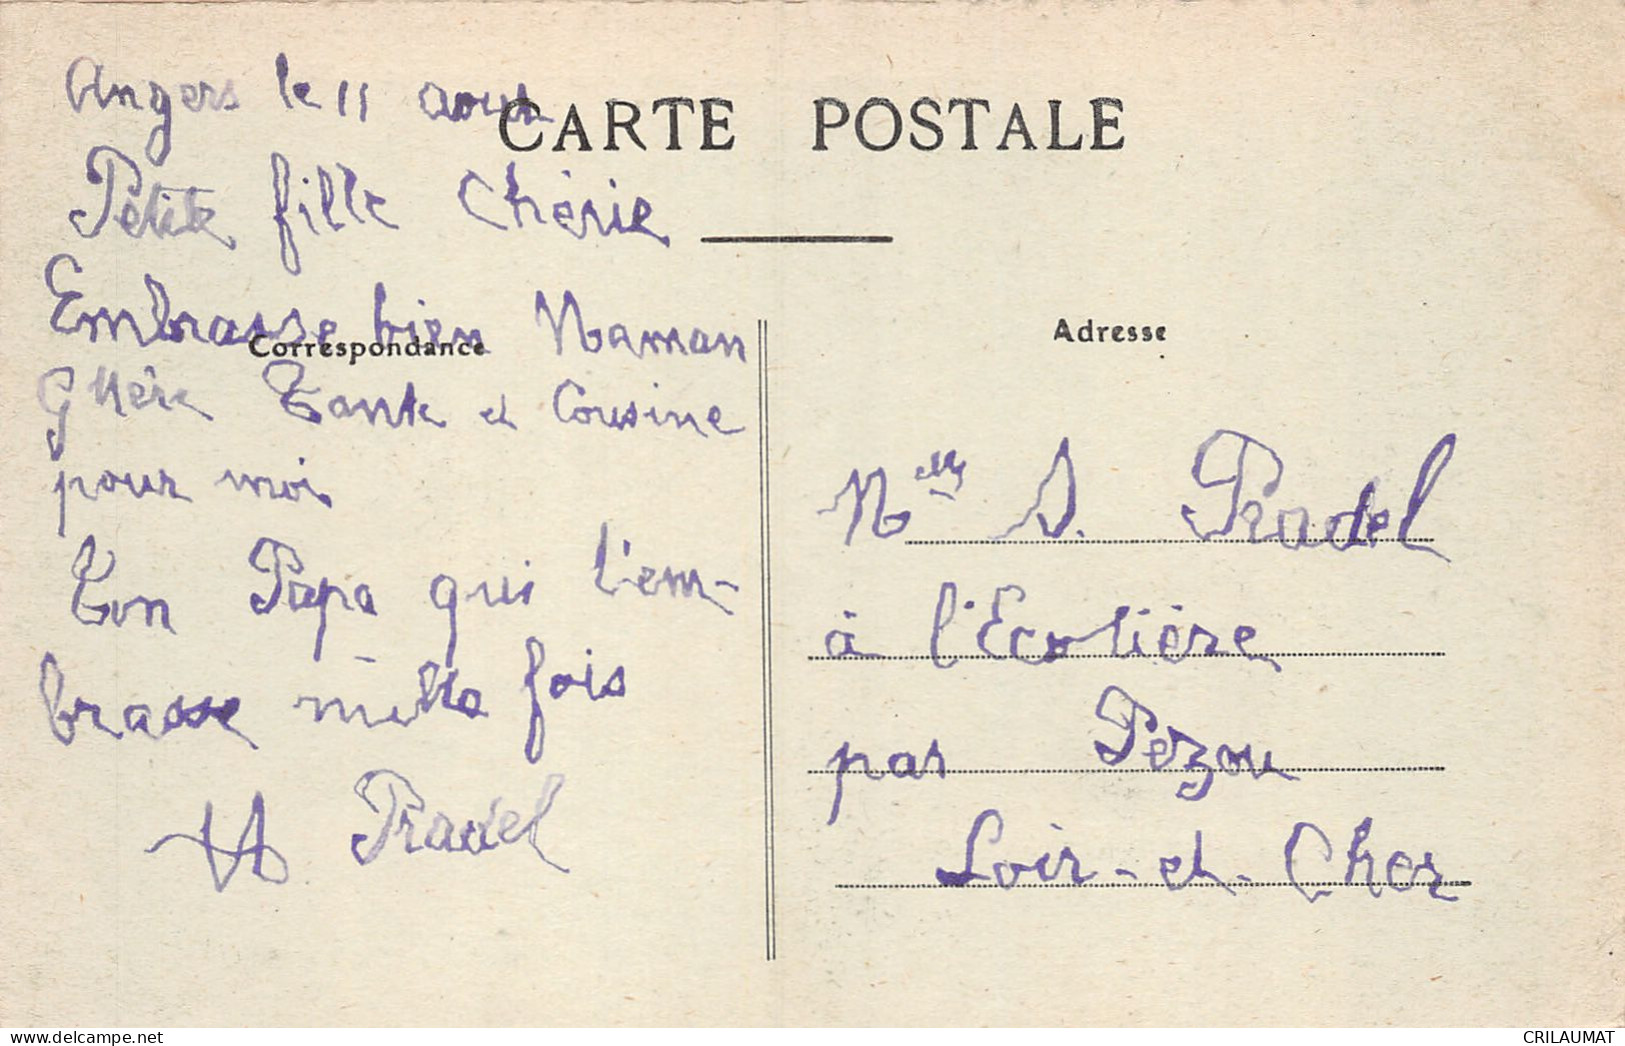 CARTE POSTALE
Angers le 11 aout
Petite fille Chérie
Embrasse bien Maman
Correspondance
G Mère Tante et Cousine
pour moi
Ton Papa qui t'em-
brasse mille fois
Pradel
Adresse
Melle S. Pradel
à l'Ecotière
par Pezou
Loir-et-Cher
delcampe.net
CRILAUMAT